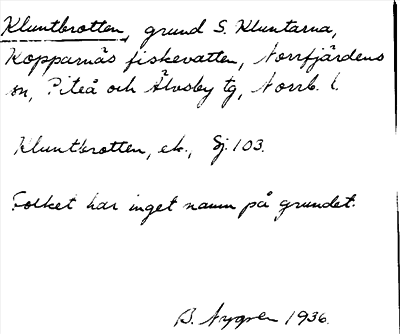 Kluntbrotten, grund S. Kluntarna,
Kopparnäs fiskevatten, Norrfjärdens
sn, Piteå och Älvsby tg, Norrb. l.
Kluntbrotten, ek., Sj. 103.
Folket har inget namn på grundet.
B. Nygren 1936.